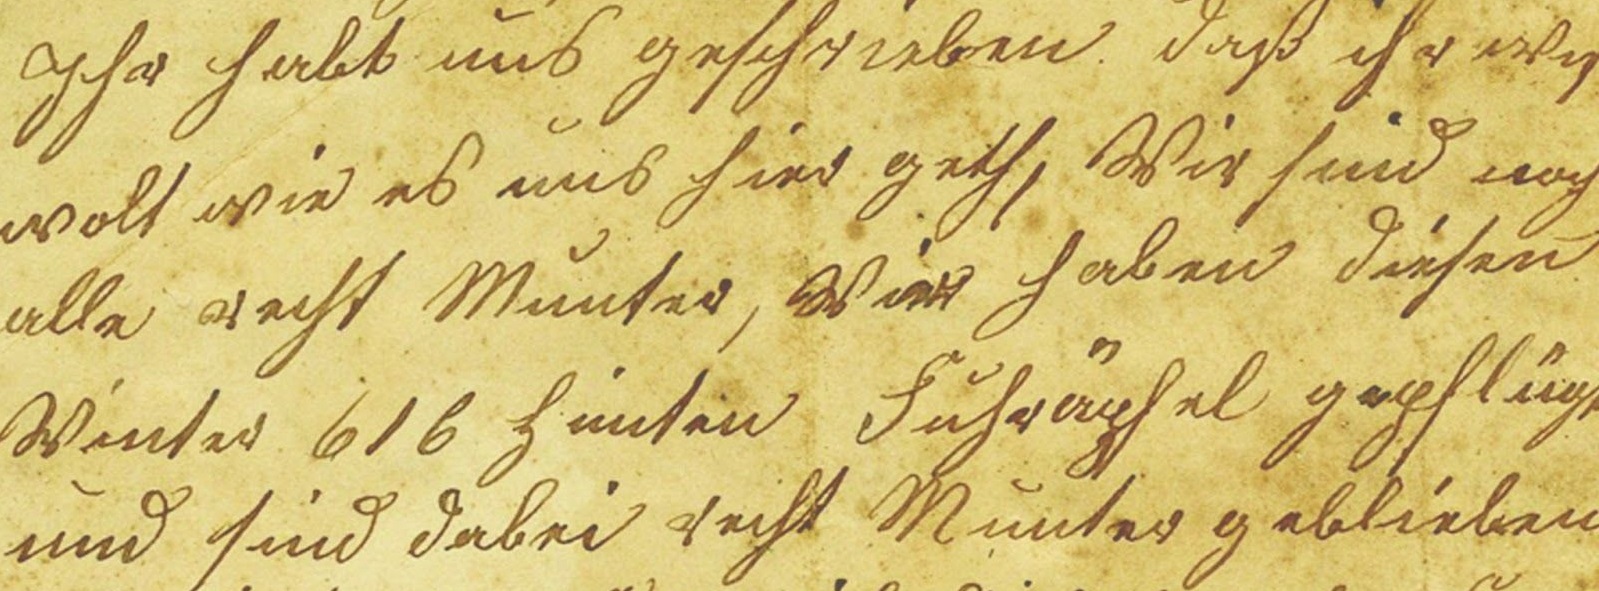 Ihr habt uns geschrieben. daß ihr
wolt wie es uns hier geth, Wir sind noch
alle recht Munter, Wir haben diesen
Winter 616 Himten Fuhräpfel gepflügt
und sind dabei recht Munter geblieben